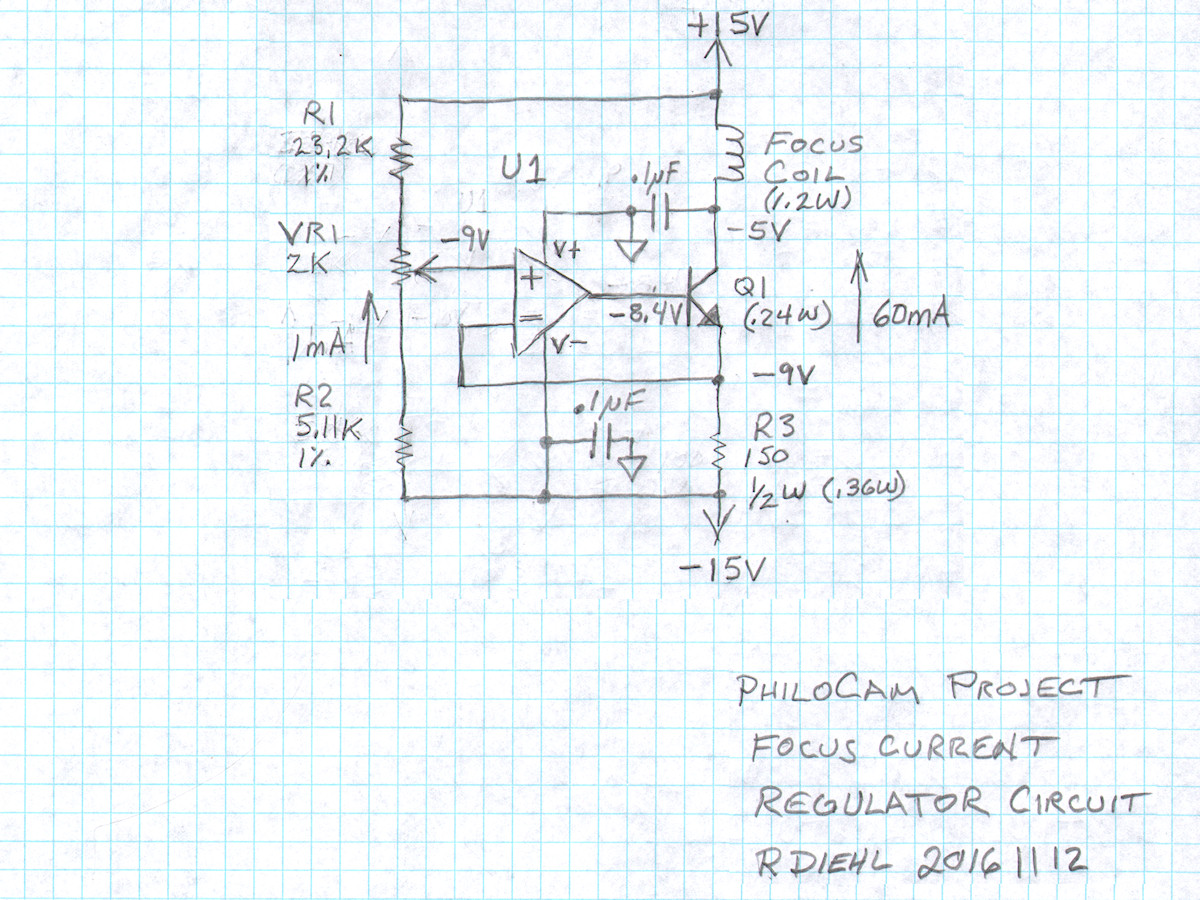 +15V
R1
23.2K
1%
U1
.1µF
FOCUS
COIL
(1.2W)
VR1
2K
-9V
V+
-5V
+
=
-8.4V
Q1
(.24W)
60mA
1mA
V-
-9V
R2
5.11K
1%
.1µF
R3
150
1/2W (.36W)
-15V
PHILOCAM PROJECT
FOCUS CURRENT
REGULATOR CIRCUIT
R DIEHL 20161112